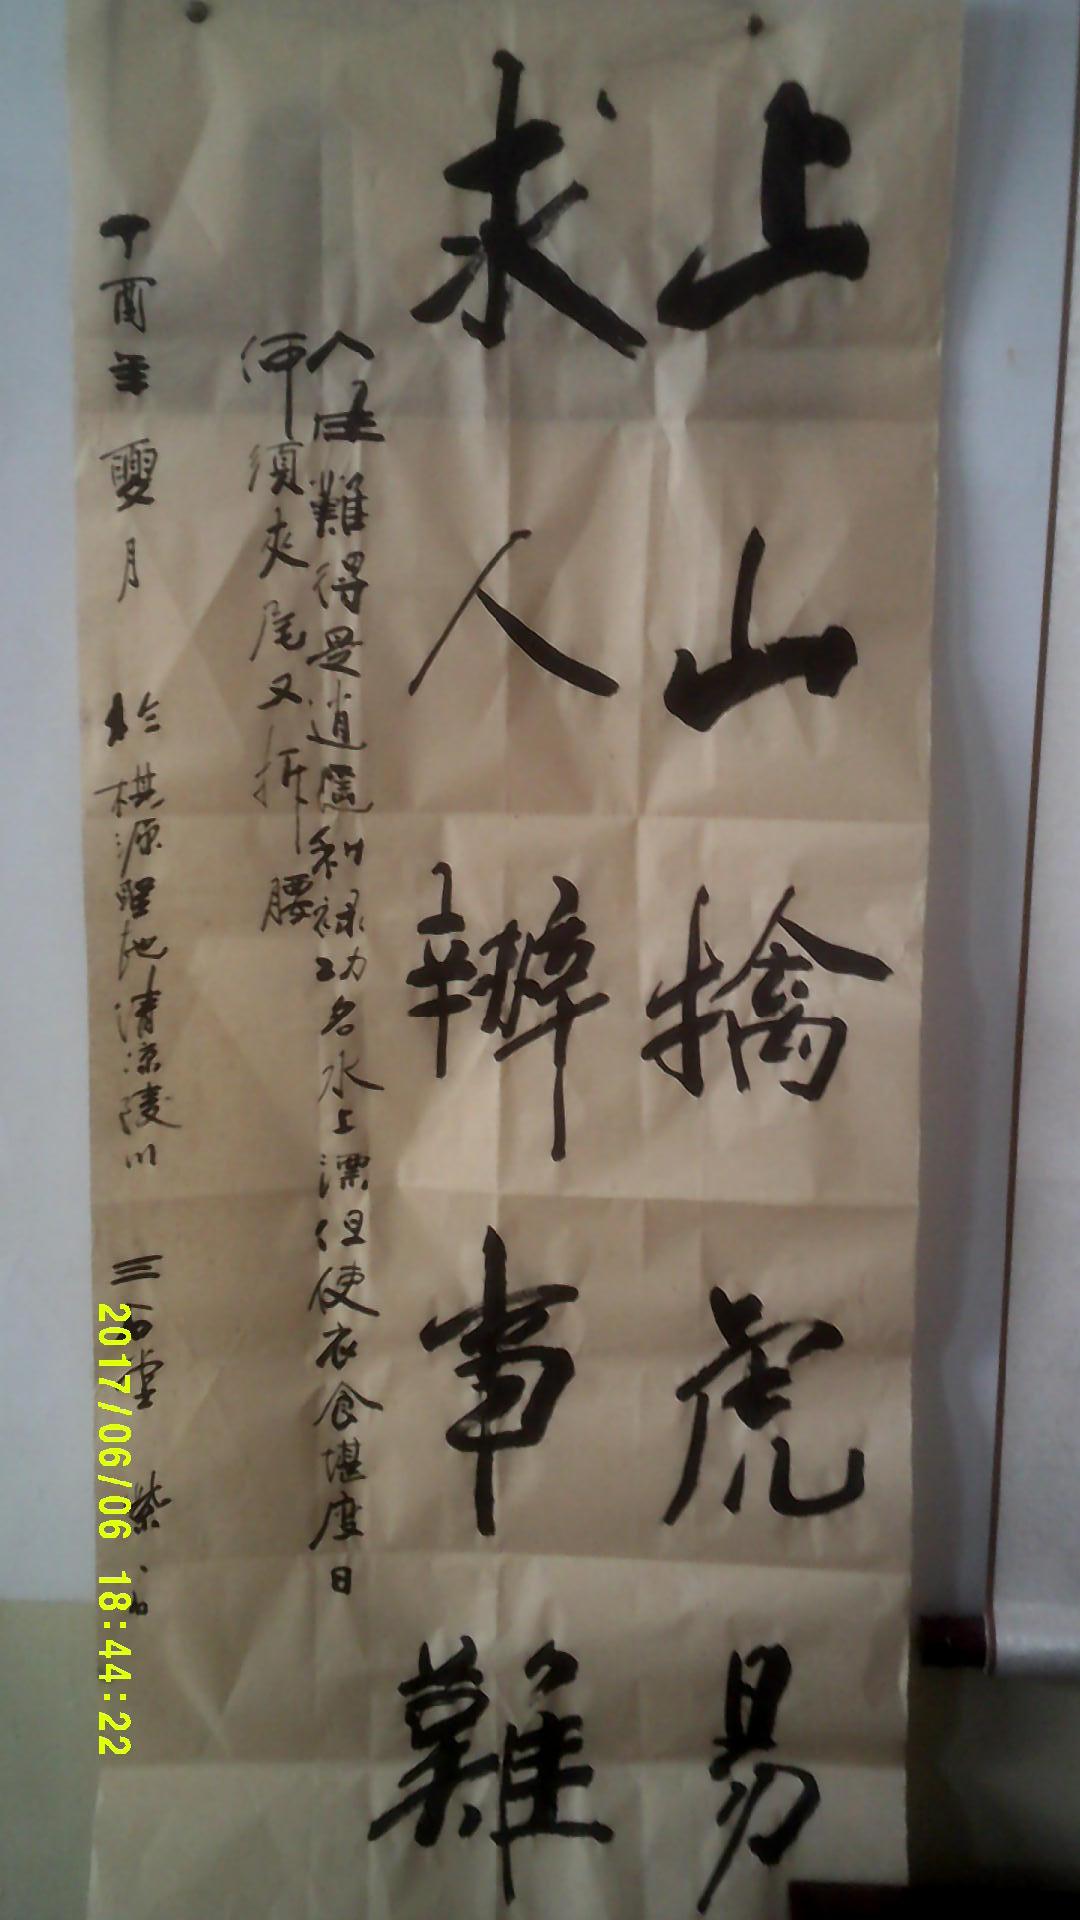 上山擒虎易
求人辦事難
人生難得是逍遥利祿功名水上漂但使衣食堪度日
何須夾尾又折腰
丁酉年夏月 於棋源聖地清凉陵川 三石堂 紫石
2017/06/06 18:44:22